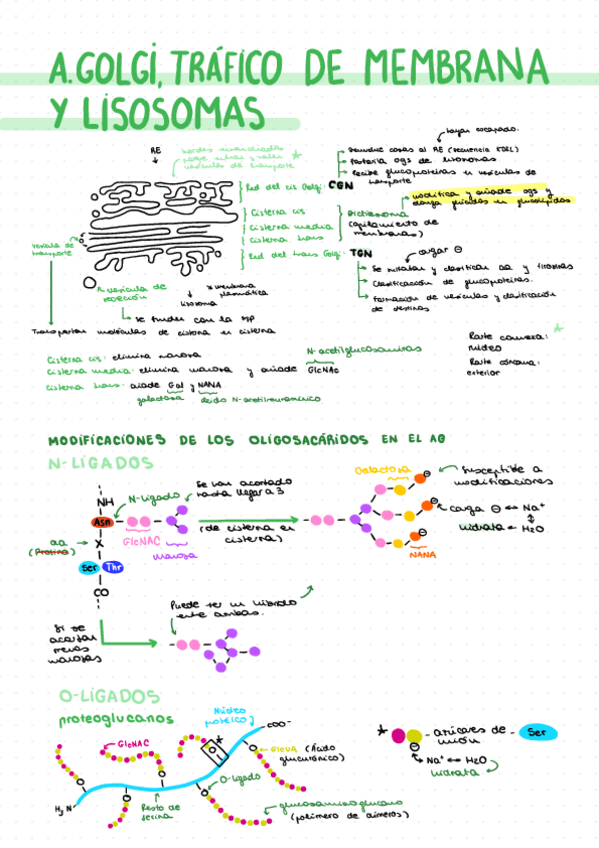 A.GOLGI, TRÁFICO DE MEMBRANA
Y LISOSOMAS
RE
bordes ensanchados
porque entran y salen
vesículas de transporte
*
Red del cis Golgi: CGN
Cisterna cis
Cisterna media
Cisterna trans
Dictiosoma
(apilamiento de
membranas)
Red del trans Golgi: TGN
hayan escapado.
Devuelve cosas al RE (secuencia KDEL)
Fosforila ogs de lisosomas
Recibe glucoproteínas en vesículas de
transporte
modifica y añade ogs y
cargar ⊖
Se sulfatan y clasifican aa y tirosinas
Clasificación de glucoproteínas.
Formación de vesículas y clasificación
de destinos
vesícula de
transporte
vesícula de
secreción
lisosoma
membrana
plasmática
se funde con la MP
Transportan moléculas de cisterna en cisterna
Cisterna cis: elimina manosa
Cisterna media: elimina manosa y añade GlcNAc
N-acetilglucosaminas
Cisterna trans: añade Gal y NANA
galactosa
ácido N-acetilneuramínico
*
Parte convexa:
núcleo
Parte cóncava:
exterior
MODIFICACIONES DE LOS OLIGOSACÁRIDOS EN EL AG
N-LIGADOS
NH
Asn
X
Ser
Thr
CO
aa
(Prolina)
N-ligado
GlcNAC
manosa
Se van acortando
hasta llegar a 3
(de cisterna en
cisterna)
Galactosa
Susceptible a
modificaciones
carga ⊖ ↔ Na⁺
hidrata ← H₂O
NANA
Si se
acortan
menos
manosas
Puede ser un híbrido
entre ambas.
O-LIGADOS
proteoglucanos
GlcNAC
Núcleo
proteico
COO⁻
*
O
GlcUA (Ácido
glucurónico)
O-ligado
H₃N⁺
Resto de
serina
glucosaminoglucano
(polímero de dímeros)
*
azúcares de
unión
Ser
Na⁺ ↔ H₂O
hidrata